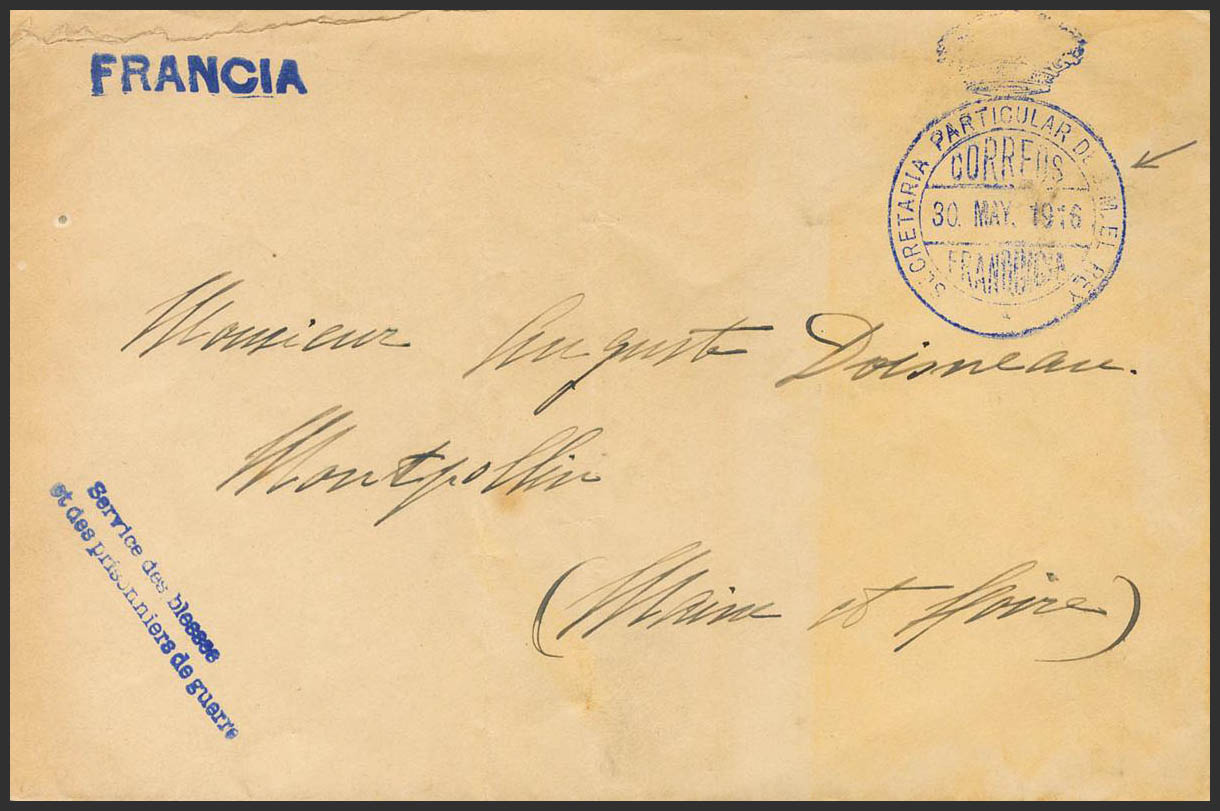 FRANCIA
SECRETARIA PARTICULAR DE S.M. EL REY
CORREOS
30. MAY. 1916
FRANQUICIA
Monsieur Auguste Doisneau.
Montpollin
(Maine et Loire)
Service des blessés
et des prisonniers de guerre